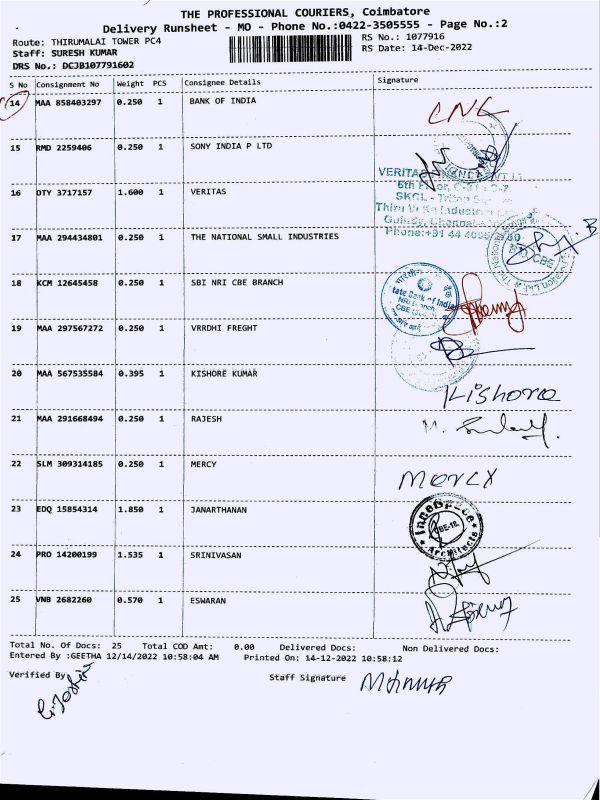 THE PROFESSIONAL COURIERS, Coimbatore
Delivery Runsheet - MO - Phone No.:0422-3505555 - Page No.:2
Route: THIRUMALAI TOWER PC4
RS No.: 1077916
Staff: SURESH KUMAR
RS Date: 14-Dec-2022
DRS No.: DCJB107791602
S No Consignment No Weight PCS Consignee Details Signature
14 MAA 858403297 0.250 1 BANK OF INDIA
CNC
15 RMD 2259406 0.250 1 SONY INDIA P LTD
VERITAS
6th
16 OTY 3717157 1.600 1 VERITAS
SKCL -
Guindy, Chennai
Phone:+91 44
17 MAA 294434801 0.250 1 THE NATIONAL SMALL INDUSTRIES
CBE
18 KCM 12645458 0.250 1 SBI NRI CBE BRANCH
State Bank of India
NRI Branch
19 MAA 297567272 0.250 1 VRRDHI FREGHT
20 MAA 567535584 0.395 1 KISHORE KUMAR
Kishore
21 MAA 291668494 0.250 1 RAJESH
22 SLM 309314185 0.250 1 MERCY
Mercy
23 EDQ 15854314 1.850 1 JANARTHANAN
CBE-18
Architects
24 PRO 14200199 1.535 1 SRINIVASAN
25 VNB 2682260 0.570 1 ESWARAN
Total No. Of Docs: 25 Total COD Amt: 0.00 Delivered Docs: Non Delivered Docs:
Entered By :GEETHA 12/14/2022 10:58:04 AM Printed On: 14-12-2022 10:58:12
Verified By
Staff Signature